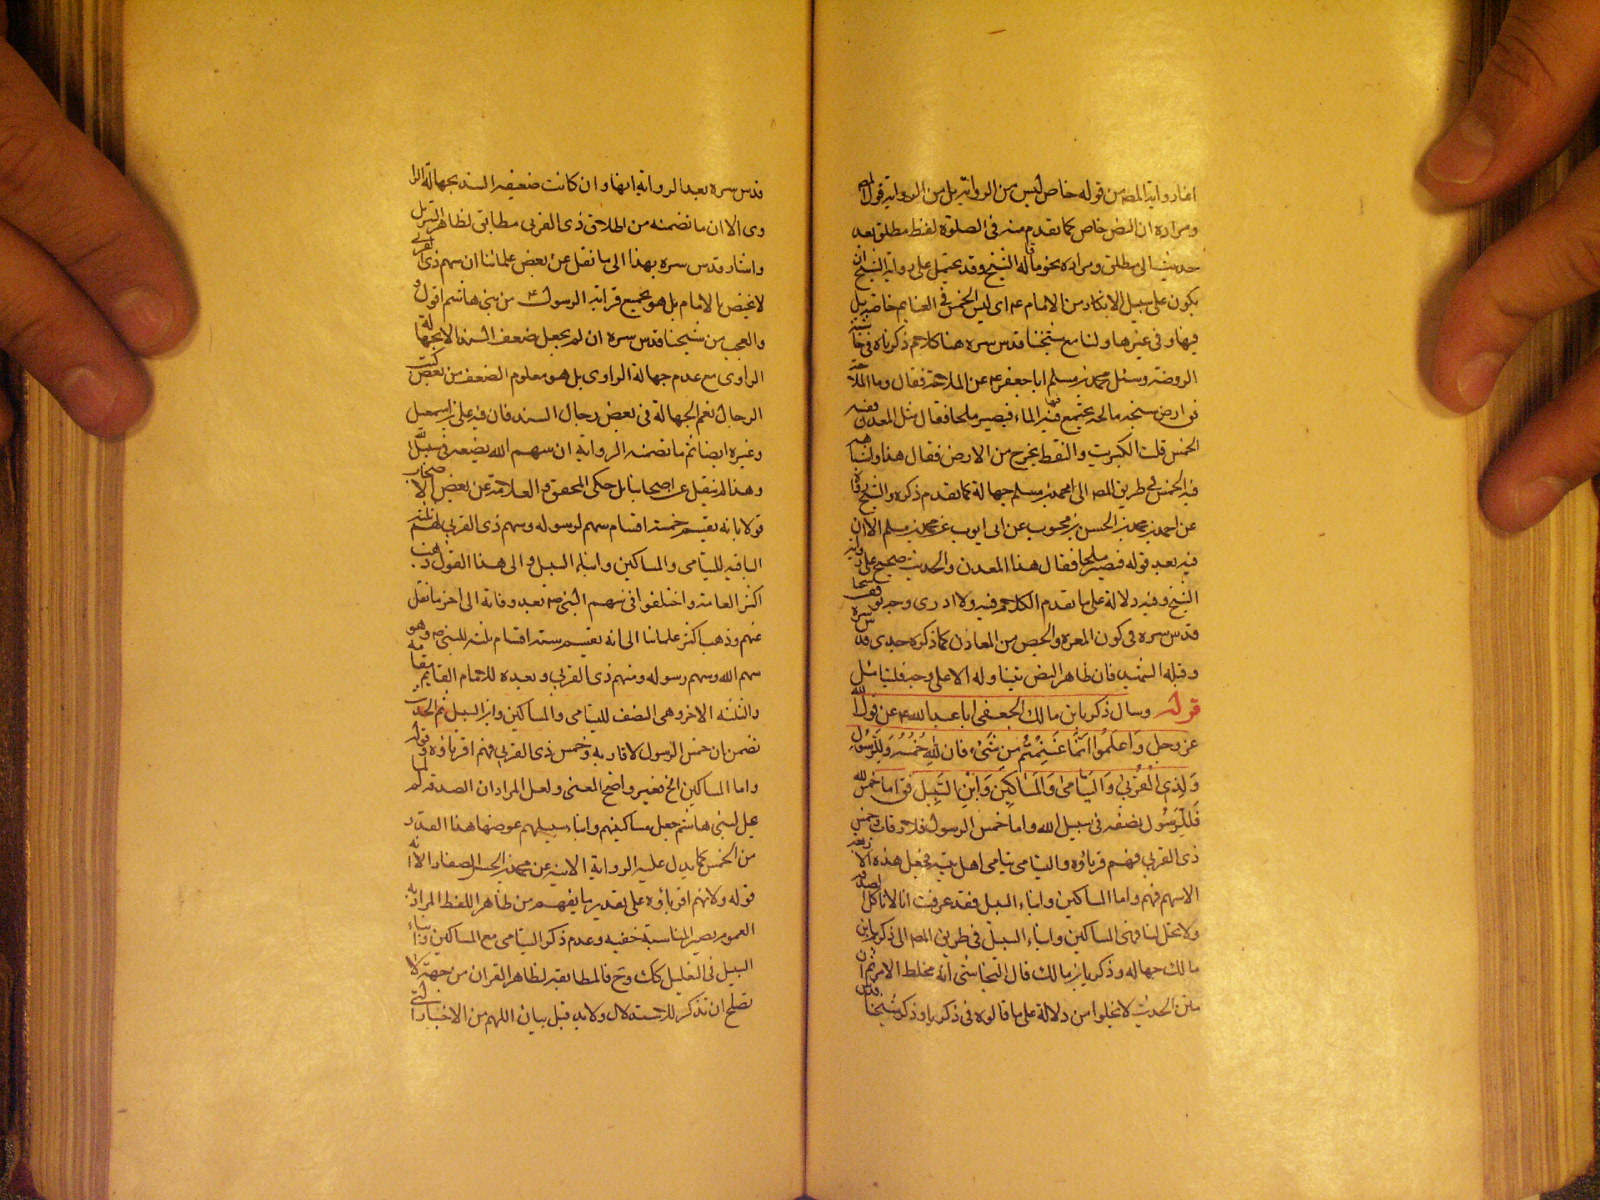 افاد رواية المص من قوله خاص ليس من الرواية بل من الرواية قول المص
ومراده ان النص خاص كما تقدم منه فى الصلوة لفظ مطلق بعد
حديث الى مطلق ومراده بنحو ما قاله الشيخ وقد يحتمل على رواية الشيخ ان
يكون على سبيل الانكار من الامام ع اى ليس الخمس فى الغنايم خاصة بل
فيها وفى غيرها ولنا مع شيخنا قدس سره هنا كلام ذكرناه فى حاشية
الروضة وسئل محمد بن مسلم ابا جعفر ع عن الملاحة فقال وما الملاحة
فق ارض سبخة مالحة يجتمع فيه الماء فيصير ملحا فقال مثل المعدن وفيه
الخمس قلت الكبريت والنفط يخرج من الارض فقال هذا واشباهه
فيه الخمس فى طريق المص الى محمد بن مسلم جهالة كما تقدم ذكره والشيخ رواه
عن احمد بن محمد بن الحسن بن محبوب عن ابى ايوب عن محمد بن مسلم الا ان
فيه بعد قوله فيصير ملحا فقال هذا المعدن والحديث صحيح على رواية
الشيخ وفيه دلالة على ما تقدم الكلام فيه ولا ادرى وجه توقف شيخنا
قدس سره فى كون المغرة والجص من المعادن كما ذكره جدى قدس سره
وقبله الشهيد فان ظاهر النص يتناوله الا على وجه فليتامل
قوله وسال زكريا بن مالك الجعفى ابا عبد الله ع عن قول الله
عز وجل وَاعلَمُوا اَنَّما غَنِمْتُم مِن شَىْءٍ فَان لِلّهِ خُمُسَهُ وَلِلرَّسُولِ
وَلِذِى الْقُرْبى وَاليَتامى وَالمَساكِينِ وَابْنِ السَّبِيلِ فق اما خمس الله
فَلِلرَّسُول يضعه فى سبيل الله واما خمس الرسول فلاقاربه وخمس
ذى القربى فهم قرباؤه واليتامى يتامى اهل بيته فجعل هذه الاربعة
الاسهم فيهم واما المساكين وابناء السبيل فقد عرفت انا لا ناكل الصدقة
ولا تحل لنا فهى للمساكين وابناء السبيل فى طريق المص الى زكريا بن
مالك جهاله وزكريا بن مالك قال النجاشى انه مخلط الامر ثم ان
متن الحديث لا يخلوا من دلالة على ما قالوه فى زكريا وذكر شيخنا
قدس سره بعد الرواية انها وان كانت ضعيفة السند بجهالة الرا
وى الا ان ما تضمنه من اطلاق ذى القربى مطابق لظاهر التنزيل
واشار قدس سره بهذا الى ما نقل عن بعض علمائنا ان سهم ذى القربى
لا يختص بالامام بل هو لجميع قرابة الرسول ص من بنى هاشم اقول و
العجب من شيخنا قدس سره ان لم يجعل ضعف السند الا بجهالة
الراوى مع عدم جهالة الراوى بل هو معلوم الضعف من بعض كتب
الرجال نعم الجهالة فى بعض رجال السند فان فيه على بن اسمعيل
وغيره ايضا ثم ما تضمنه الرواية ان سهم الله يضعه فى سبيل الله
وهذا لم ينقل عن اصحابنا بل حكى المحقق والعلامة عن بعض الاصحاب
قولا بانه يقسم خمسة اقسام سهم لرسوله وسهم ذى القربى لهم والثلثة
الباقية لليتامى والمساكين وابناء السبيل والى هذا القول ذهب
اكثر العامة واختلفوا فى سهم النبى ص بعد وفاته الى اخر ما نقل
عنهم وذهب اكثر علمائنا الى انه يقسم ستة اقسام ثلثة للنبى ص وهو
سهم الله وسهم رسوله وسهم ذى القربى وبعده للامام القايم مقامه
والثلثه الاخر وهى النصف لليتامى والمساكين وابن السبيل ثم الحديث
تضمن بان خمس الرسول لاقاربه وخمس ذى القربى فهم اقرباؤه وقوله
واما المساكين الخ تغيير واضح المعنى ولعل المراد ان الصدقة لم
تحل لبنى هاشم جعل مساكينهم وابناء سبيلهم عوضها هذا القدر
من الخمس كما يدل عليه الرواية الاتية عن محمد بن الحسن الصفار الا ان
قوله ولانهم اقرباؤه على تقدير ما يفهم من ظاهر اللفظ المراد به
العموم يصير المناسبة خفيه وعدم ذكر اليتامى مع المساكين وابناء
السبيل فى التعليل كك وح فالمطابقه لظاهر القران من جهته لا
تصلح ان تذكر للاستدلال ولابد قبل بيان اللهم من الاخبار التى